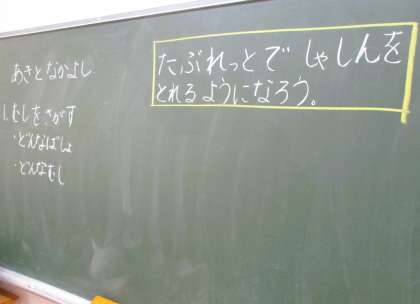 あきとなかよし
1.むしをさがす
・どんなばしょ
・どんなむし
たぶれっとで しゃしんを
とれるようになろう。